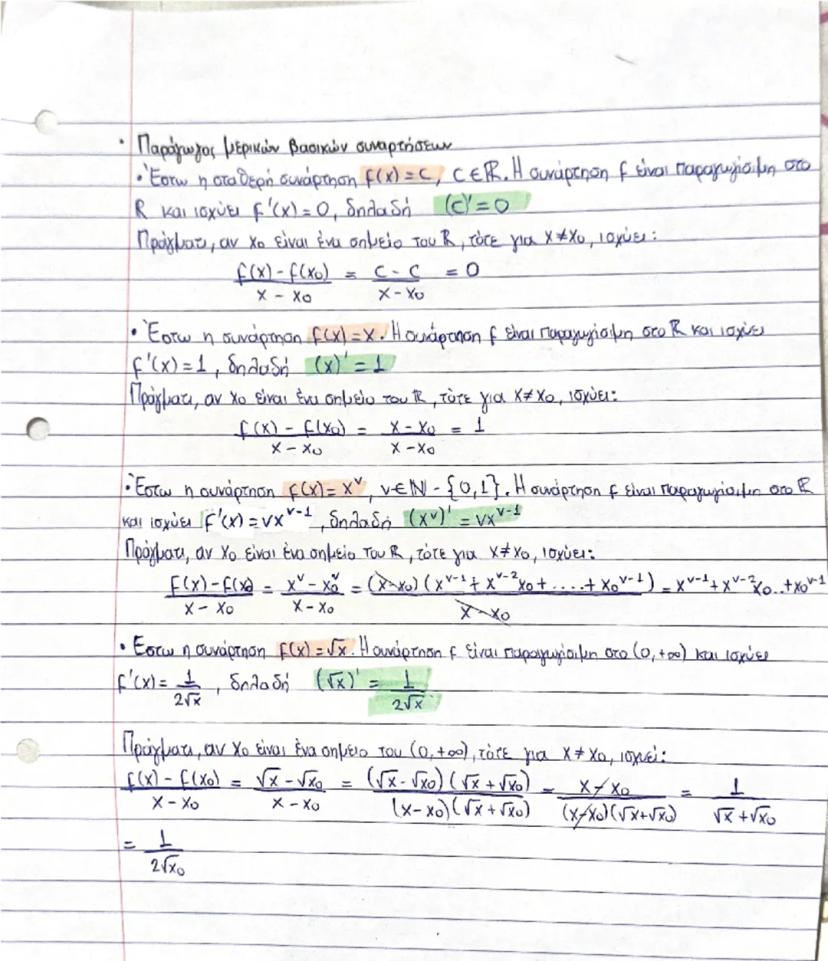 · Παράγωγος μερικών βασικών συναρτήσεων
· Έστω η σταθερή συνάρτηση f(x) = c, c ∈ ℝ. Η συνάρτηση f είναι παραγωγίσιμη στο
ℝ και ισχύει f'(x) = 0, δηλαδή (c)' = 0
Πράγματι, αν x₀ είναι ένα σημείο του ℝ, τότε για x ≠ x₀, ισχύει:
(f(x) - f(x₀))/(x - x₀) = (c - c)/(x - x₀) = 0
· Έστω η συνάρτηση f(x) = x. Η συνάρτηση f είναι παραγωγίσιμη στο ℝ και ισχύει
f'(x) = 1, δηλαδή (x)' = 1
Πράγματι, αν x₀ είναι ένα σημείο του ℝ, τότε για x ≠ x₀, ισχύει:
(f(x) - f(x₀))/(x - x₀) = (x - x₀)/(x - x₀) = 1
· Έστω η συνάρτηση f(x) = x^ν, ν ∈ ℕ - {0,1}. Η συνάρτηση f είναι παραγωγίσιμη στο ℝ
και ισχύει f'(x) = νx^(ν-1), δηλαδή (x^ν)' = νx^(ν-1)
Πράγματι, αν x₀ είναι ένα σημείο του ℝ, τότε για x ≠ x₀, ισχύει:
(f(x) - f(x₀))/(x - x₀) = (x^ν - x₀^ν)/(x - x₀) = (x - x₀)(x^(ν-1) + x^(ν-2)x₀ + .... + x₀^(ν-1))/(x - x₀) = x^(ν-1) + x^(ν-2)x₀..+x₀^(ν-1)
· Έστω η συνάρτηση f(x) = √x. Η συνάρτηση f είναι παραγωγίσιμη στο (0, +∞) και ισχύει
f'(x) = 1/(2√x), δηλαδή (√x)' = 1/(2√x)
Πράγματι, αν x₀ είναι ένα σημείο του (0, +∞), τότε για x ≠ x₀, ισχύει:
(f(x) - f(x₀))/(x - x₀) = (√x - √x₀)/(x - x₀) = (√x - √x₀)(√x + √x₀)/((x - x₀)(√x + √x₀)) = (x - x₀)/((x - x₀)(√x + √x₀)) = 1/(√x + √x₀)
= 1/(2√x₀)